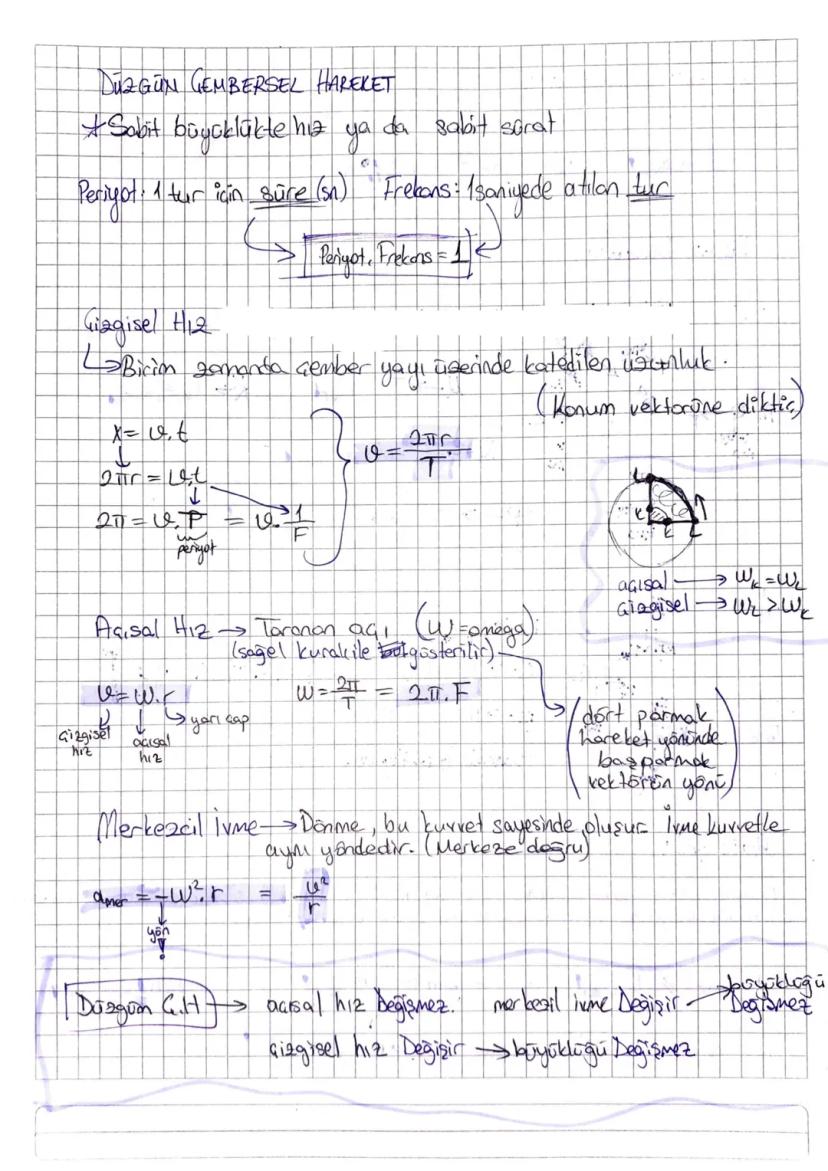 DÜZGÜN ÇEMBERSEL HAREKET
* Sabit büyüklükte hız ya da sabit sürat
Periyot: 1 tur için süre (sn) Frekans: 1 saniyede atılan tur
Periyot . Frekans = 1
Çizgisel Hız
↳ Birim zamanda çember yayı üzerinde katedilen uzunluk.
(Konum vektörüne diktir)
x = v.t
2πr = v.t
2π = v.P = v.1/F
periyot
v = 2πr/T
L
K
K L
açısal → WK = WL
çizgisel → WL > WK
Açısal Hız → Taranan açı (W=omega)
(sağel kuralı ile gösterilir)
v = W.r W = 2π/T = 2π.F
çizgisel hız
açısal hız
yarıçap
(dört parmak
hareket yönünde
başparmak
vektörün yönü)
Merkezcil İvme → Dönme, bu kuvvet sayesinde oluşur İvme kuvvetle
aynı yöndedir. (Merkeze doğru)
amer = -W².r = v²/r
yön
!
Düzgün Ç.H → açısal hız Değişmez. merkezil ivme Değişir → büyüklüğü Değişmez
çizgisel hız Değişir → büyüklüğü Değişmez